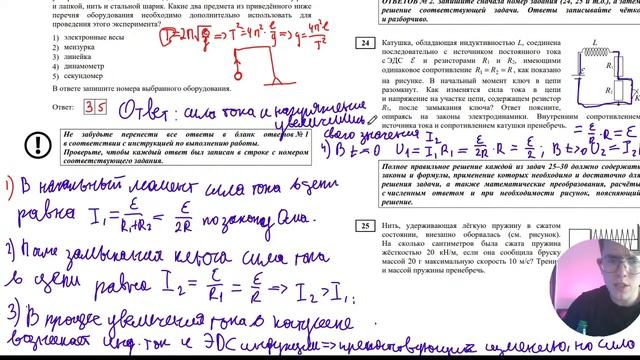 и лапкой, нить и стальной шарик. Какие два предмета из приведённого ниже
перечня оборудования необходимо дополнительно использовать для
проведения этого эксперимента?
1) электронные весы
2) мензурка
3) линейка
4) динамометр
5) секундомер
В ответе запишите номера выбранного оборудования.
Ответ: 3 5
T=2π√(ℓ/g) ⇒ T²=4π²·ℓ/g ⇒ g=4π²ℓ/T²
Ответ: сила тока и напряжение
увеличились
Не забудьте перенести все ответы в бланк ответов № 1
в соответствии с инструкцией по выполнению работы.
Проверьте, чтобы каждый ответ был записан в строке с номером
соответствующего задания.
ОТВЕТОВ № 2. Запишите сначала номер задания (24, 25 и т.д.), а затем
решение соответствующей задачи. Ответы записывайте чётко
и разборчиво.
24
Катушка, обладающая индуктивностью L, соединена
последовательно с источником постоянного тока
с ЭДС ℰ и резисторами R₁ и R₂, имеющими
одинаковое сопротивление R₁ = R₂ = R, как показано
на рисунке. В начальный момент ключ в цепи
разомкнут. Как изменятся сила тока в цепи
и напряжение на участке цепи, содержащем резистор
R₁, после замыкания ключа? Ответ поясните,
опираясь на законы электродинамики. Внутренним сопротивлением
источника тока и сопротивлением катушки пренебречь.
L
R₁
R₂
своего значения I₂
4) В t=0 U₁=I₁R₁=ℰ/2R·R=ℰ/2; В t>0 U₂=I₂
=ℰ/R·R=ℰ
Полное правильное решение каждой из задач 25–30 должно содержать
законы и формулы, применение которых необходимо и достаточно для
решения задачи, а также математические преобразования, расчёты
с численным ответом и при необходимости рисунок, поясняющий
решение.
25
Нить, удерживающая лёгкую пружину в сжатом
состоянии, внезапно оборвалась (см. рисунок).
На сколько сантиметров была сжата пружина
жёсткостью 20 кН/м, если она сообщила бруску
массой 20 г максимальную скорость 10 м/с? Трени
и массой пружины пренебречь.
1) В начальный момент сила тока в цепи
равна I₁=ℰ/(R₁+R₂)=ℰ/2R по закону Ома.
2) После замыкания ключа сила тока
в цепи равна I₂=ℰ/R₁=ℰ/R ⇒ I₂>I₁
3) В процессе увеличения тока в катушке
возникает инд. ток и ЭДС индукции ⇒ препятствующий изменению, но сила